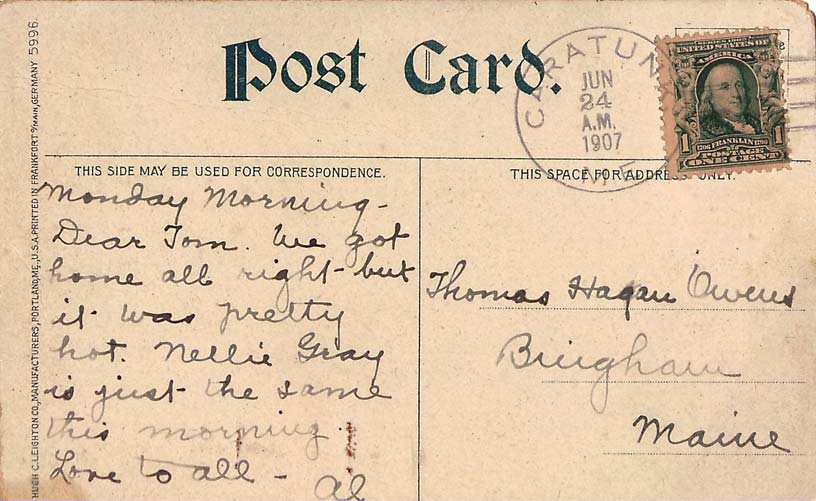 Post Card.
CARATUNK
JUN
24
A.M.
1907
ME.
UNITED STATES OF
AMERICA
1 1706 FRANKLIN 1790 1
POSTAGE
ONE CENT
THIS SIDE MAY BE USED FOR CORRESPONDENCE.
THIS SPACE FOR ADDRESS ONLY.
Monday Morning-
Dear Tom. We got
home all right but
it was pretty
hot. Nellie Gray
is just the same
this morning.
Love to all -
Al
Thomas Hagan Owens
Bingham
Maine
HUGH C. LEIGHTON CO., MANUFACTURERS, PORTLAND, ME., U.S.A. PRINTED IN FRANKFORT o/MAIN, GERMANY 5996